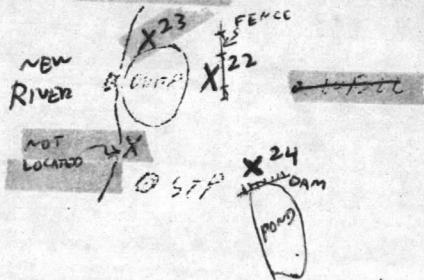 X 23
FENCE
NEW
RIVER
DUMP
X 22
NOT
LOCATED
X
STP
X 24
DAM
POND